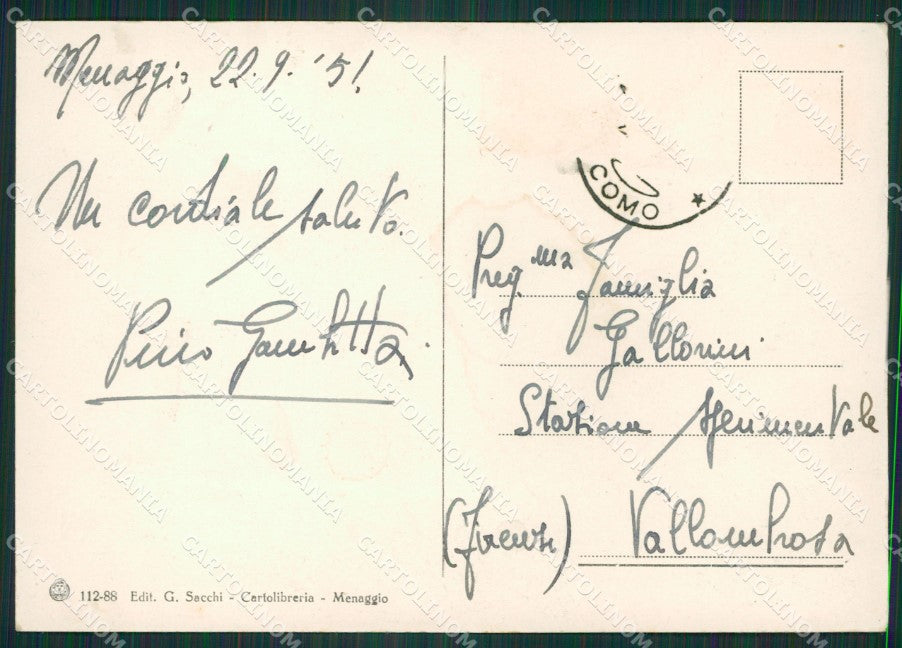 Menaggio, 22.9.'51.
Un cordiale saluto.
Pino
COMO
Preg.ma Famiglia
Gallorini
Stazione Sperimentale
Vallombrosa
(Firenze)
112-88 Edit. G. Sacchi - Cartolibreria - Menaggio
CARTOLINOMANIA